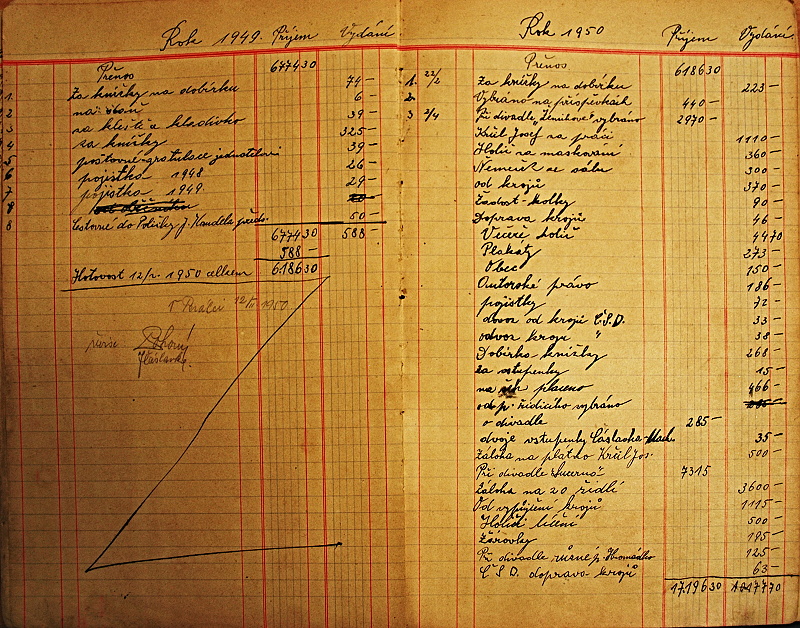 Rok 1949. Příjem Vydání
Přenos 677430
1 Za knížky na dobírku 74 –
2 na 6 –
3 za kleště a kladívko 39 –
4 za knížky 325 –
5 poštovné gratulace jednatelovi 39 –
6 pojistka 1948 26 –
7 pojistka 1949 29 –
8
8 Cestovné do Poličky J. Handla předs. 50 –
677430 588 –
588 –
Hotovost 12/2. 1950 celkem 618630
12/II 1950
Rok 1950 Příjem Vydání
Přenos 618630
1. 22/2 Za knížky na dobírku 223 –
2. Vybráno na příspěvkách 440 –
3 2/4 Při divadle „ vybráno 2970 –
Král Josef za práci 1110 –
Holič za maskování 360 –
Němeček ze sálu 300 –
od krojů 370 –
Žádost – kolky 90 –
Doprava krojů 46 –
Večeře holič 4470
Plakáty 273 –
Obec 150 –
Autorské právo 186
pojistky 72 –
dovoz od krojů Č.S.D. 33 –
odvoz krojů " 38 –
Dobírka knížky 268
za vstupenky 15 –
na placeno 466
od p. řídícího vybráno
o divadle 285 –
dvoje vstupenky Čáslavka 35 –
Záloha na plátno Král Jos. 500 –
Při divadle Lucerna 7315
Záloha na 20 židlí 3600 –
Od vypůjčení krojů 1115 –
Holiči líčení 500 –
Žárovky 195 –
Při divadle různé p. Hromádko 125 –
Č S D. doprava krojů 63 –
1719630